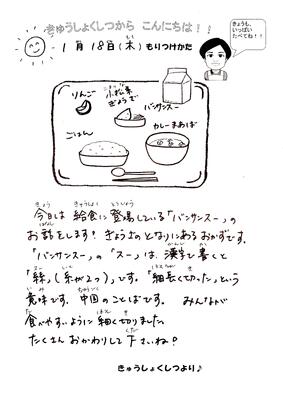 きゅうしょくしつから こんにちは!!
きょうも
いっぱい
たべてね!!
1月18日(木)もりつけかた
りんご
小松菜
ぎょうざ
バンサンスー
カレーまあぼ
ごはん
今日は 給食に登場している「バンサンスー」の
お話をします!ぎょうざのとなりにあるおかずです。
「バンサンスー」の「スー」は、漢字で書くと
「絲」(糸が2つ)です。「細長く切った」という
意味です。中国のことばです。みんなが
食べやすいように細く切りました。
たくさんおかわりして下さいね?
きゅうしょくしつより♪